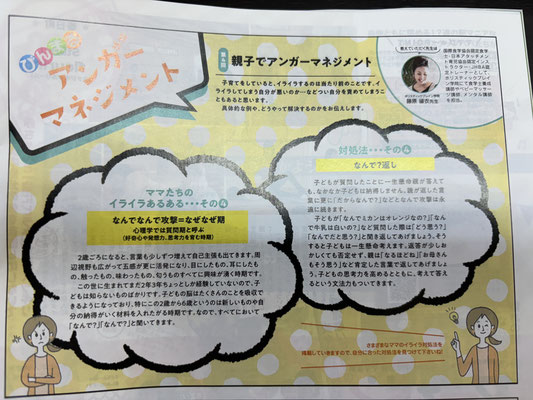 ぴんまの
アンガー
マネジメント
親子でアンガーマネジメント
子育てをしていると、イライラするのは当たり前のことです。イラ
イラしてしまう自分が悪いのか…などつい自分を責めてしまうこ
ともあると思います。
具体的な例や、どうやって解決するのかをお伝えします。
教えていただく先生は
藤原 綾衣先生
国際食学協会認定食学
士・日本アタッチメン
ト育児協会認定インス
トラクター・JHBA認
定トレーナーとして、
ホリスティックブレイ
ン学院にて食学士養成
講師やベビーマッサー
ジ講師 メンタル講師
を担当。
ママたちの
イライラあるある・・・その④
なんでなんで攻撃=なぜなぜ期
心理学では質問期と呼ぶ
(好奇心や発想力、思考力を育む時期)
2歳ごろになると、言葉も少しずつ増えて自己主張も出てきます。周
辺視野も広がって五感が更に活発になり、目にしたもの、耳にしたも
の、触ったもの、味わったもの、匂うものすべてに興味が湧く時期です。
この世に生まれてまだ2年3年ちょっとしか経験していないので、子
どもは知らないものばかりです。子どもの脳はたくさんのことを吸収で
きるようになっており、特にこの2歳から6歳というのは新しいものや自
分の納得がいく材料を入れたがる時期です。なので、すべてにおいて
「なんで?」「なんで?」と聞いてきます。
対処法・・・その④
なんで?返し
子どもが質問したことに一生懸命親が答えて
も、なかなか子どもは納得しません。親が返した言
葉に更に「だからなんで?」などとなんで攻撃は永
遠に続きます。
子どもが「なんでミカンはオレンジなの?」「なん
で牛乳は白いの?」など質問した際は「どう思う?」
「なんでだと思う?」と聞き返してあげましょう。そ
うすると子どもは一生懸命考えます。返答が少しお
かしくても否定せず、親は「なるほどね」「お母さん
もそう思う」など肯定した言葉で返してあげましょ
う。子どもの思考力を高めるとともに、考えて答え
るという文法力もついてきます。
さまざまなママのイライラ対処法を
掲載していきますので、自分にあった対処法を見つけて下さいね!